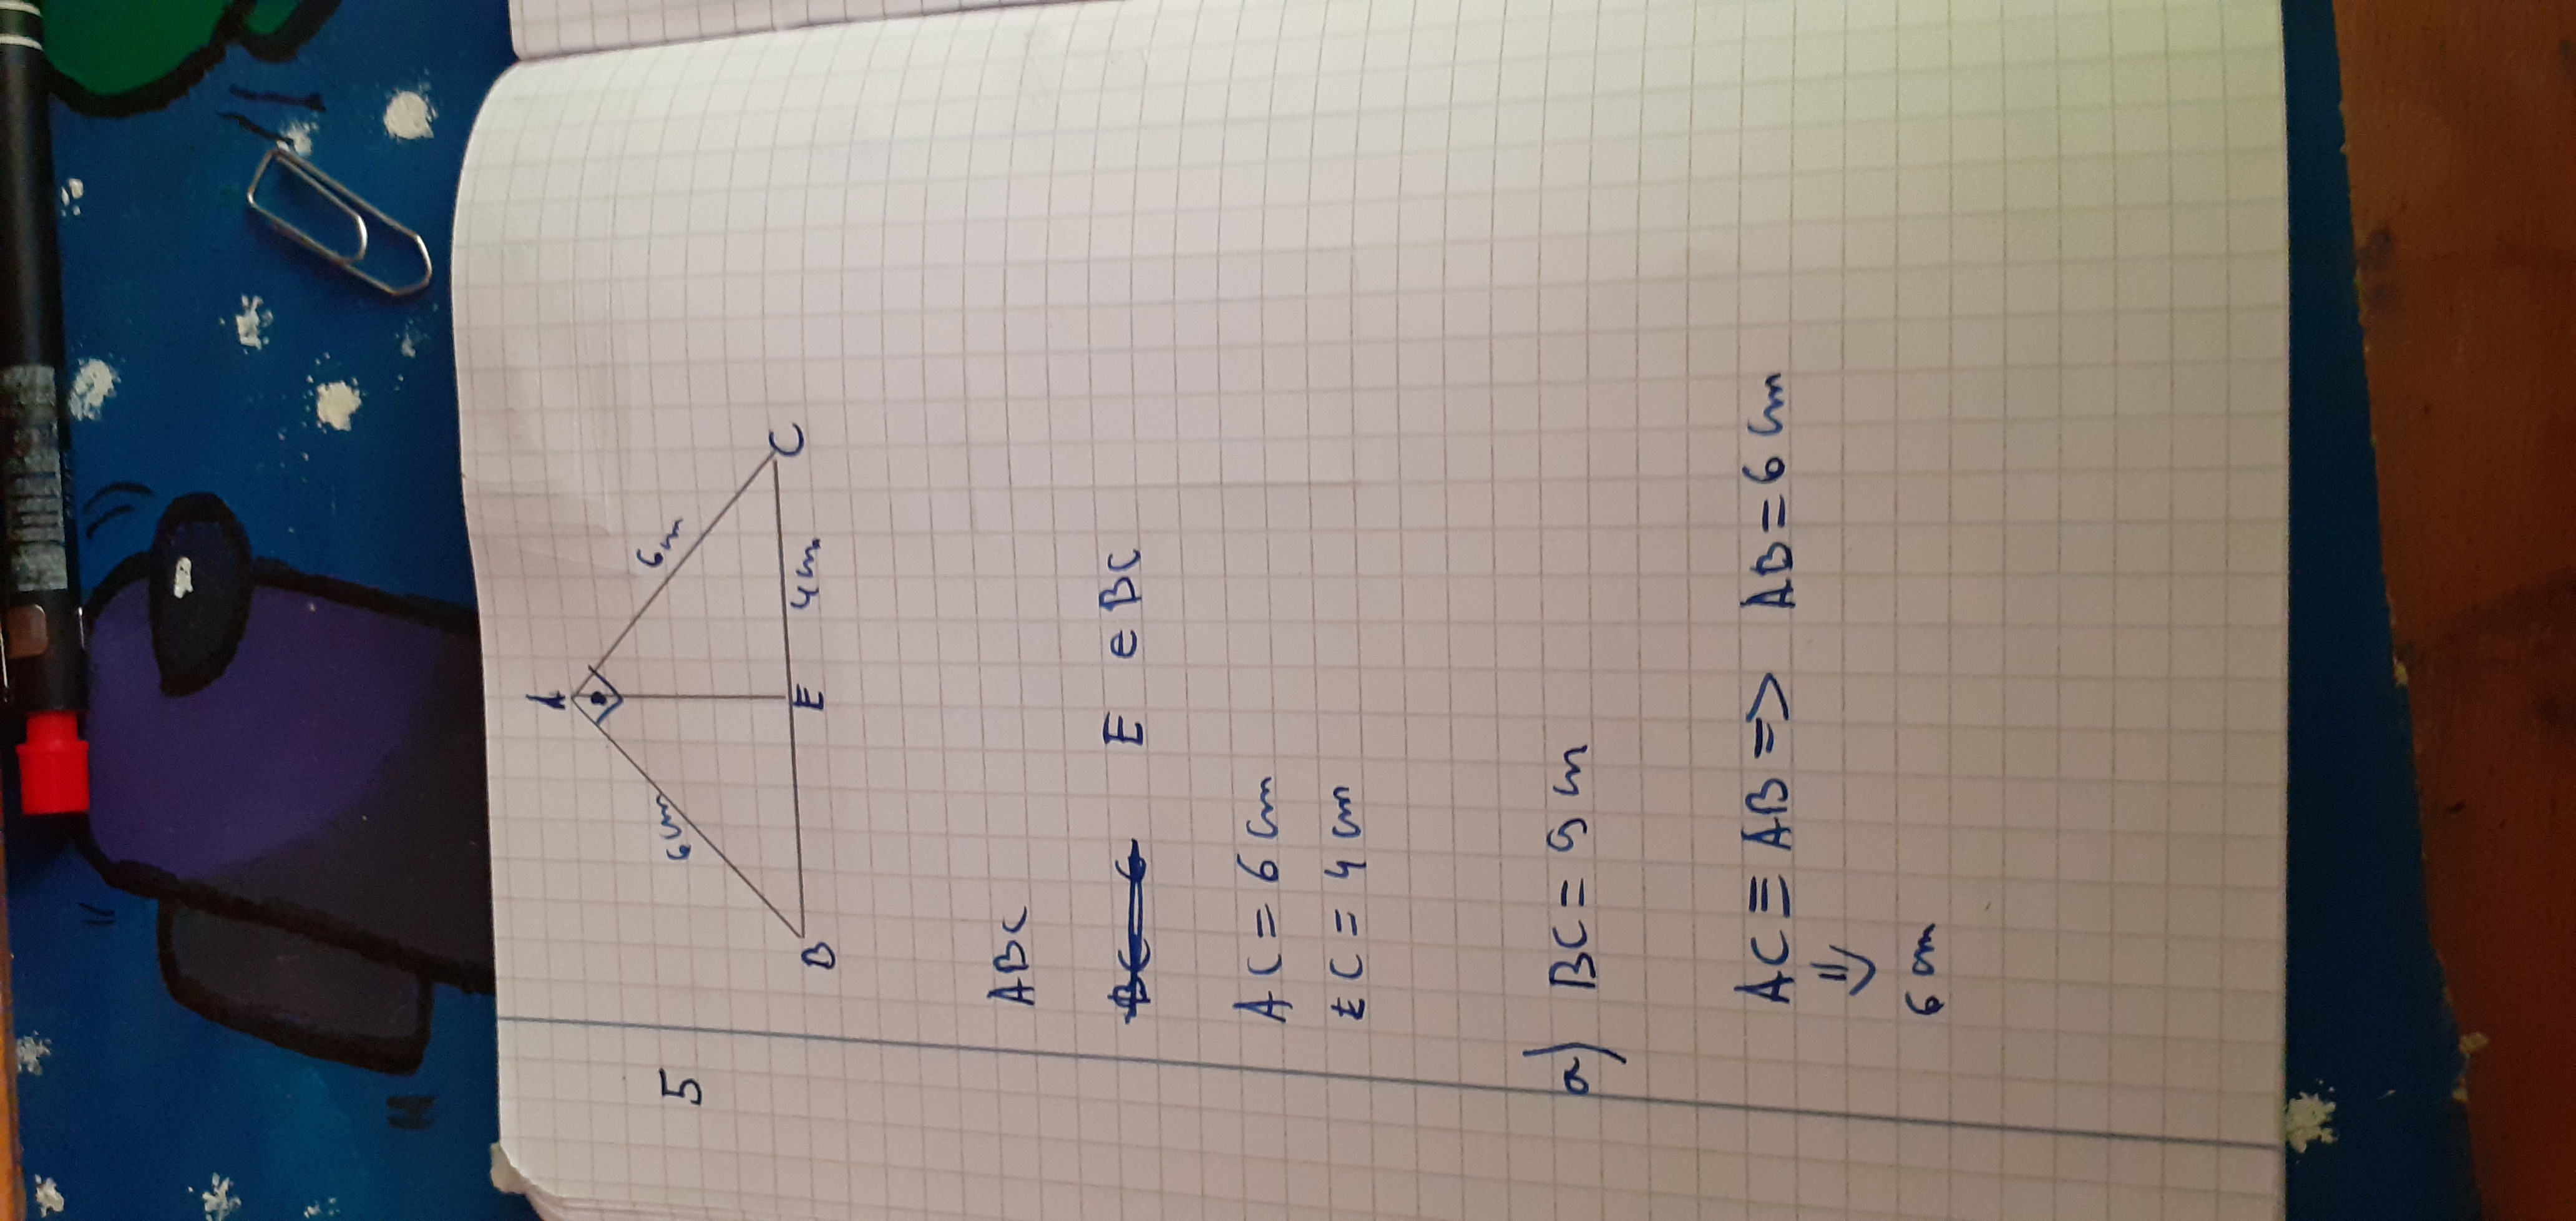 5
A
6cm
6m
B
E
4cm
C
ABC
E e BC
AC = 6cm
EC = 4cm
a) BC = 9m
AC ≡ AB => AB = 6cm
6cm